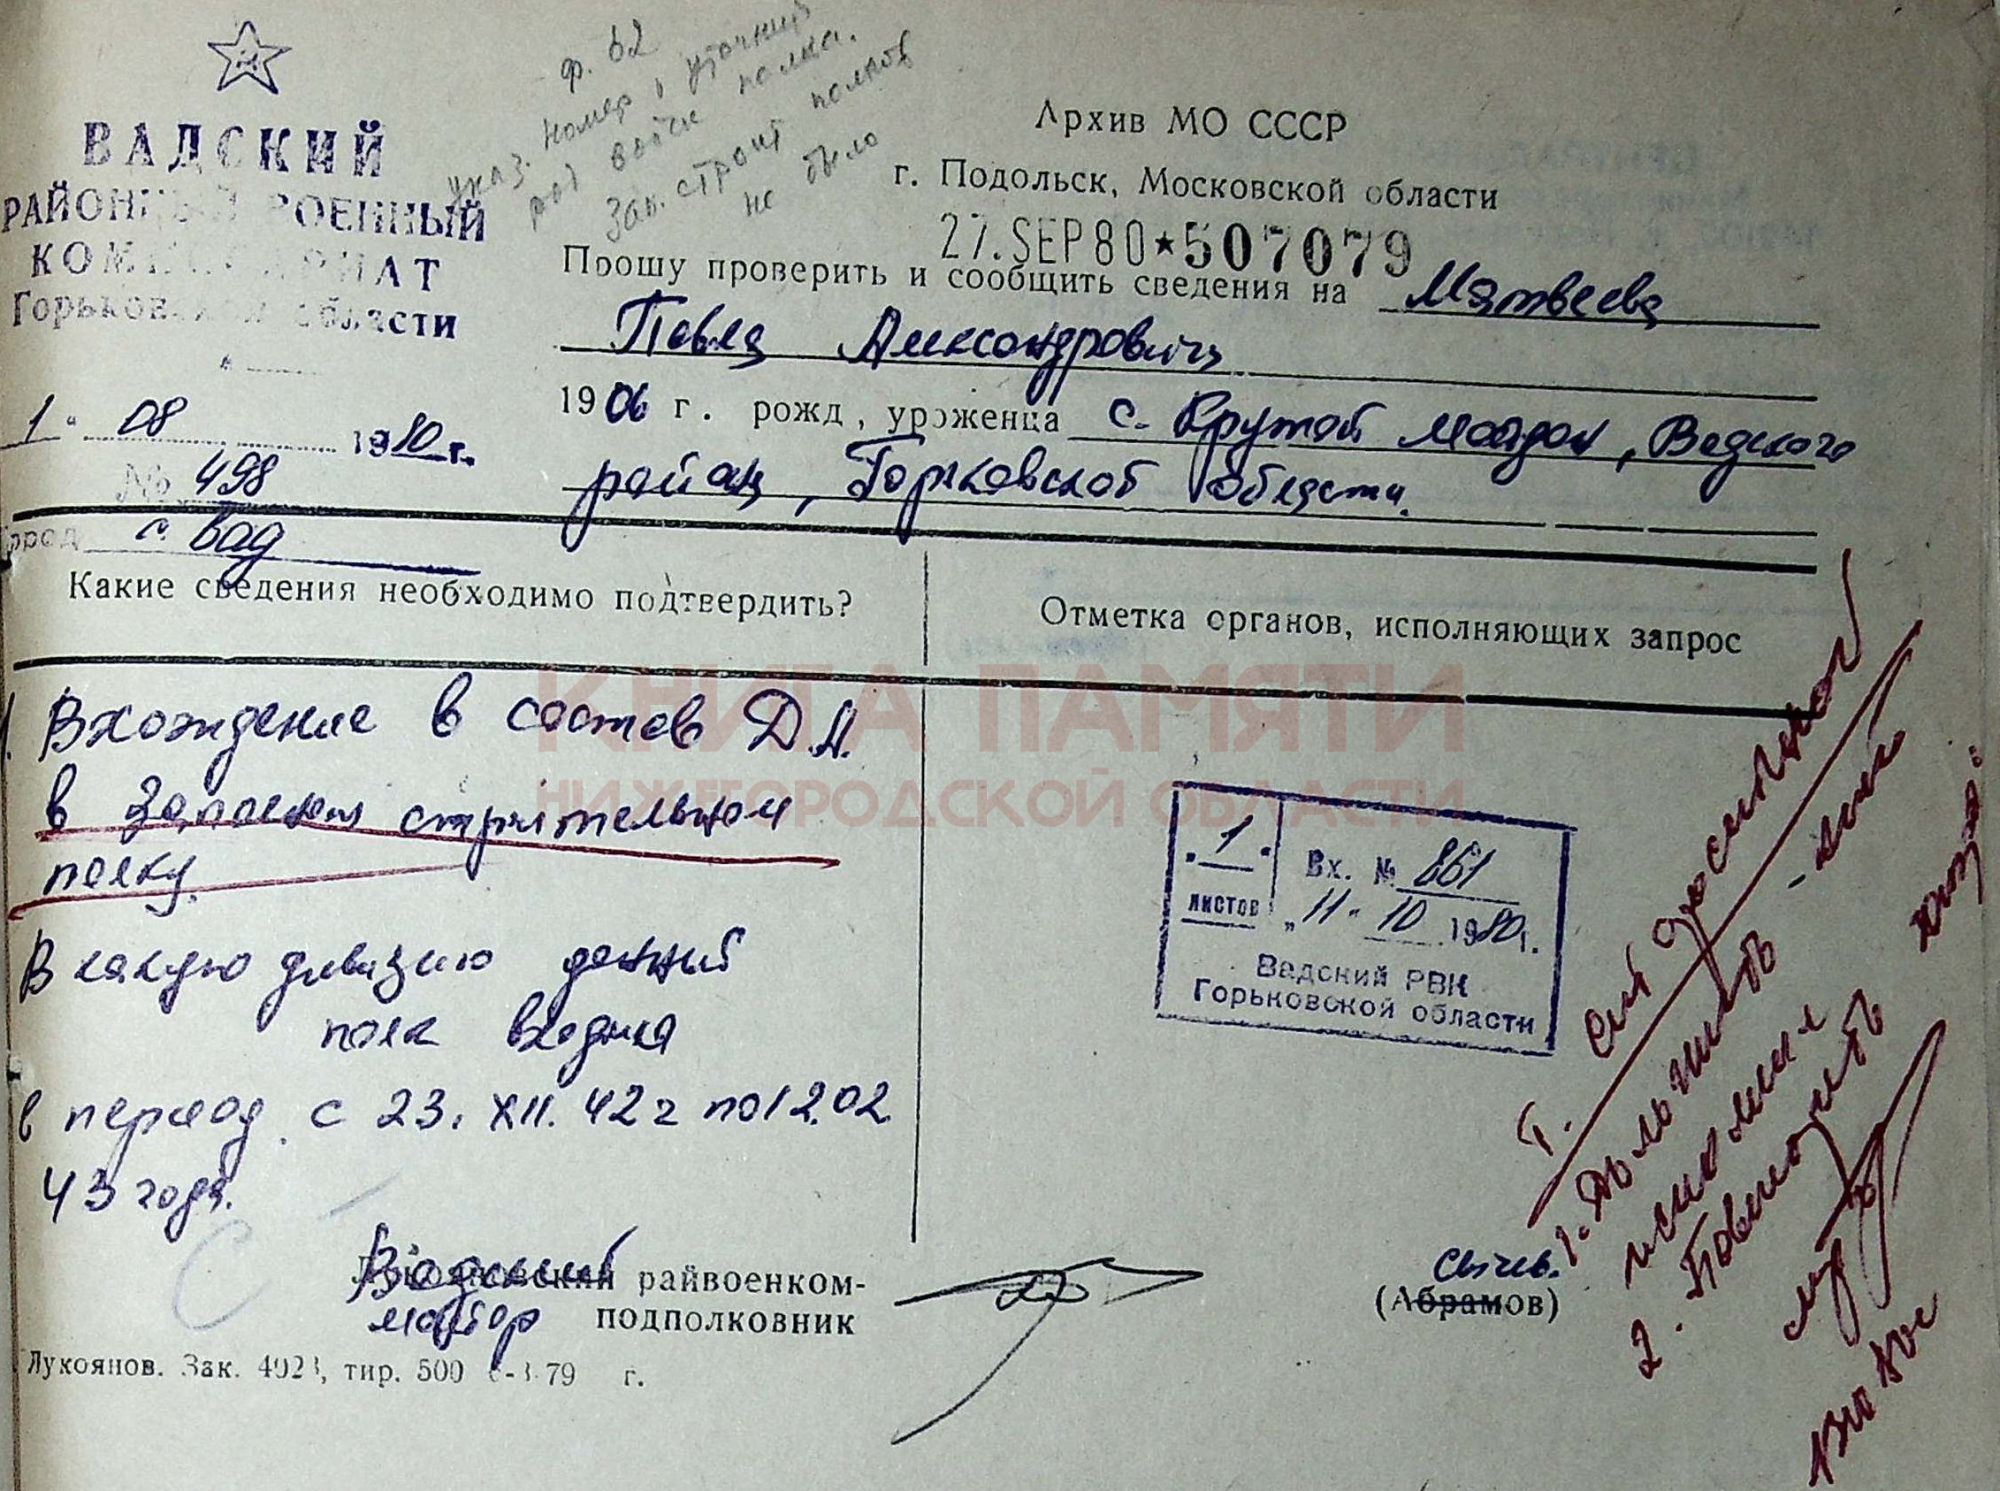 ВАДСКИЙ
РАЙОННЫЙ ВОЕННЫЙ
КОМИССАРИАТ
Горьковской области
1 " 08 1980 г.
№ 498
город с. Вад
ф. 62
указ. номер и уточнить
род войск полка.
Зап. строит полков
не было
Архив МО СССР
г. Подольск, Московской области
27.SEP80★507079
Прошу проверить и сообщить сведения на Матвеева
Павла Александровича
1906 г. рожд, уроженца с. Крутой Майдан, Вадского
района, Горьковской области.
Какие сведения необходимо подтвердить?
Отметка органов, исполняющих запрос
1. Вхождение в состав Д.А.
в запасном строительном
полку.
В какую дивизию данный
полк входил
в период с 23. XII. 42 г по 12.02
43 года.
КНИГА ПАМЯТИ
НИЖЕГОРОДСКОЙ ОБЛАСТИ
"1"
листов
Вх. № 861
"11" 10 1980 г.
Вадский РВК
Горьковской области
Т.
1.
2. Повторить
Вадский
Лукояновский райвоенком-
майор подполковник
Сычев.
(Абрамов)
Лукоянов. Зак. 4923, тир. 500 79 г.